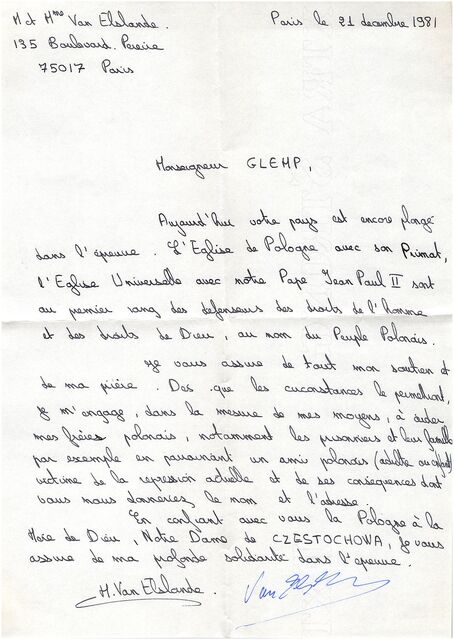 M et Mme Van Elslande.
Paris le 21 decembre 1981
135 Boulevard. Pereire
75017 Paris
Monseigneur GLEMP,
Aujourd'hui votre pays est encore plongé
dans l'épreuve. L'Eglise de Pologne avec son Primat,
l'Eglise Universelle avec notre Pape Jean Paul II sont
au premier rang des défenseurs des droits de l'homme
et des droits de Dieu, au nom du Peuple Polonais.
Je vous assure de tout mon soutien et
de ma prière. Des que les circonstances le permettront,
je m'engage, dans la mesure de mes moyens, à aider
mes frères polonais, notamment les prisonniers et leur famille
par exemple en parrainant un ami polonais (adulte ou enfant)
victime de la repression actuelle et de ses conséquences dont
vous nous donneriez le nom et l'adresse.
En confiant avec vous la Pologne à la
Mère de Dieu, Notre Dame de CZESTOCHOWA, je vous
assure de ma profonde solidarité dans l'épreuve.
H. Van Elslande.